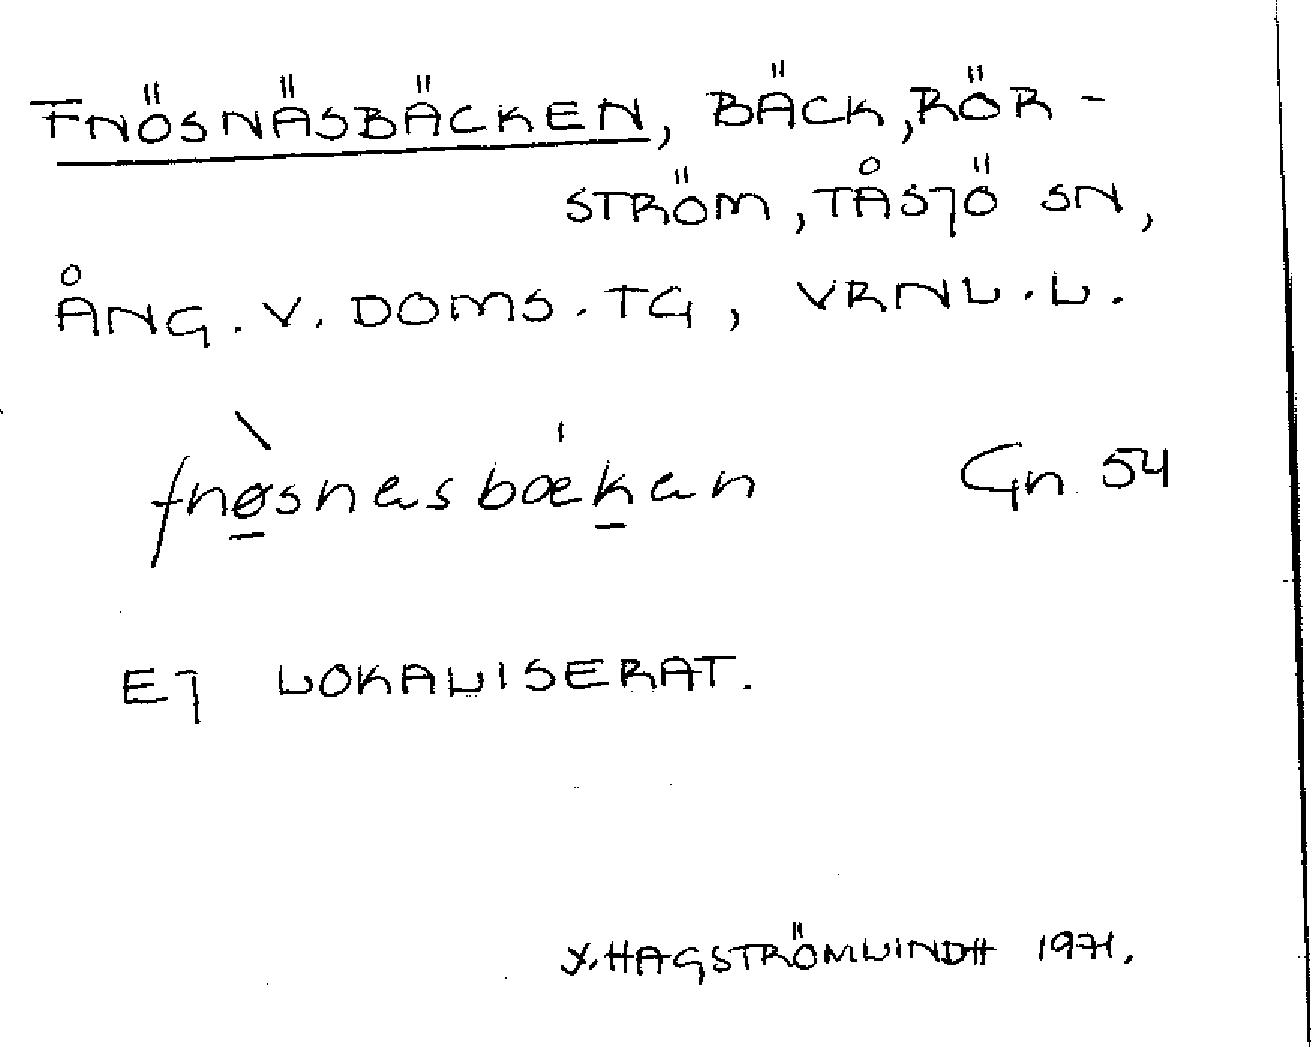 FNÖSNÄSBÄCKEN, BÄCK, RÖR-
STRÖM, TÅSJÖ SN,
ÅNG. V. DOMS. TG, VRNL. L.
fnøsnesbækan Gn 54
EJ LOKALISERAT.
Y. HAGSTRÖMLINDH 1971.